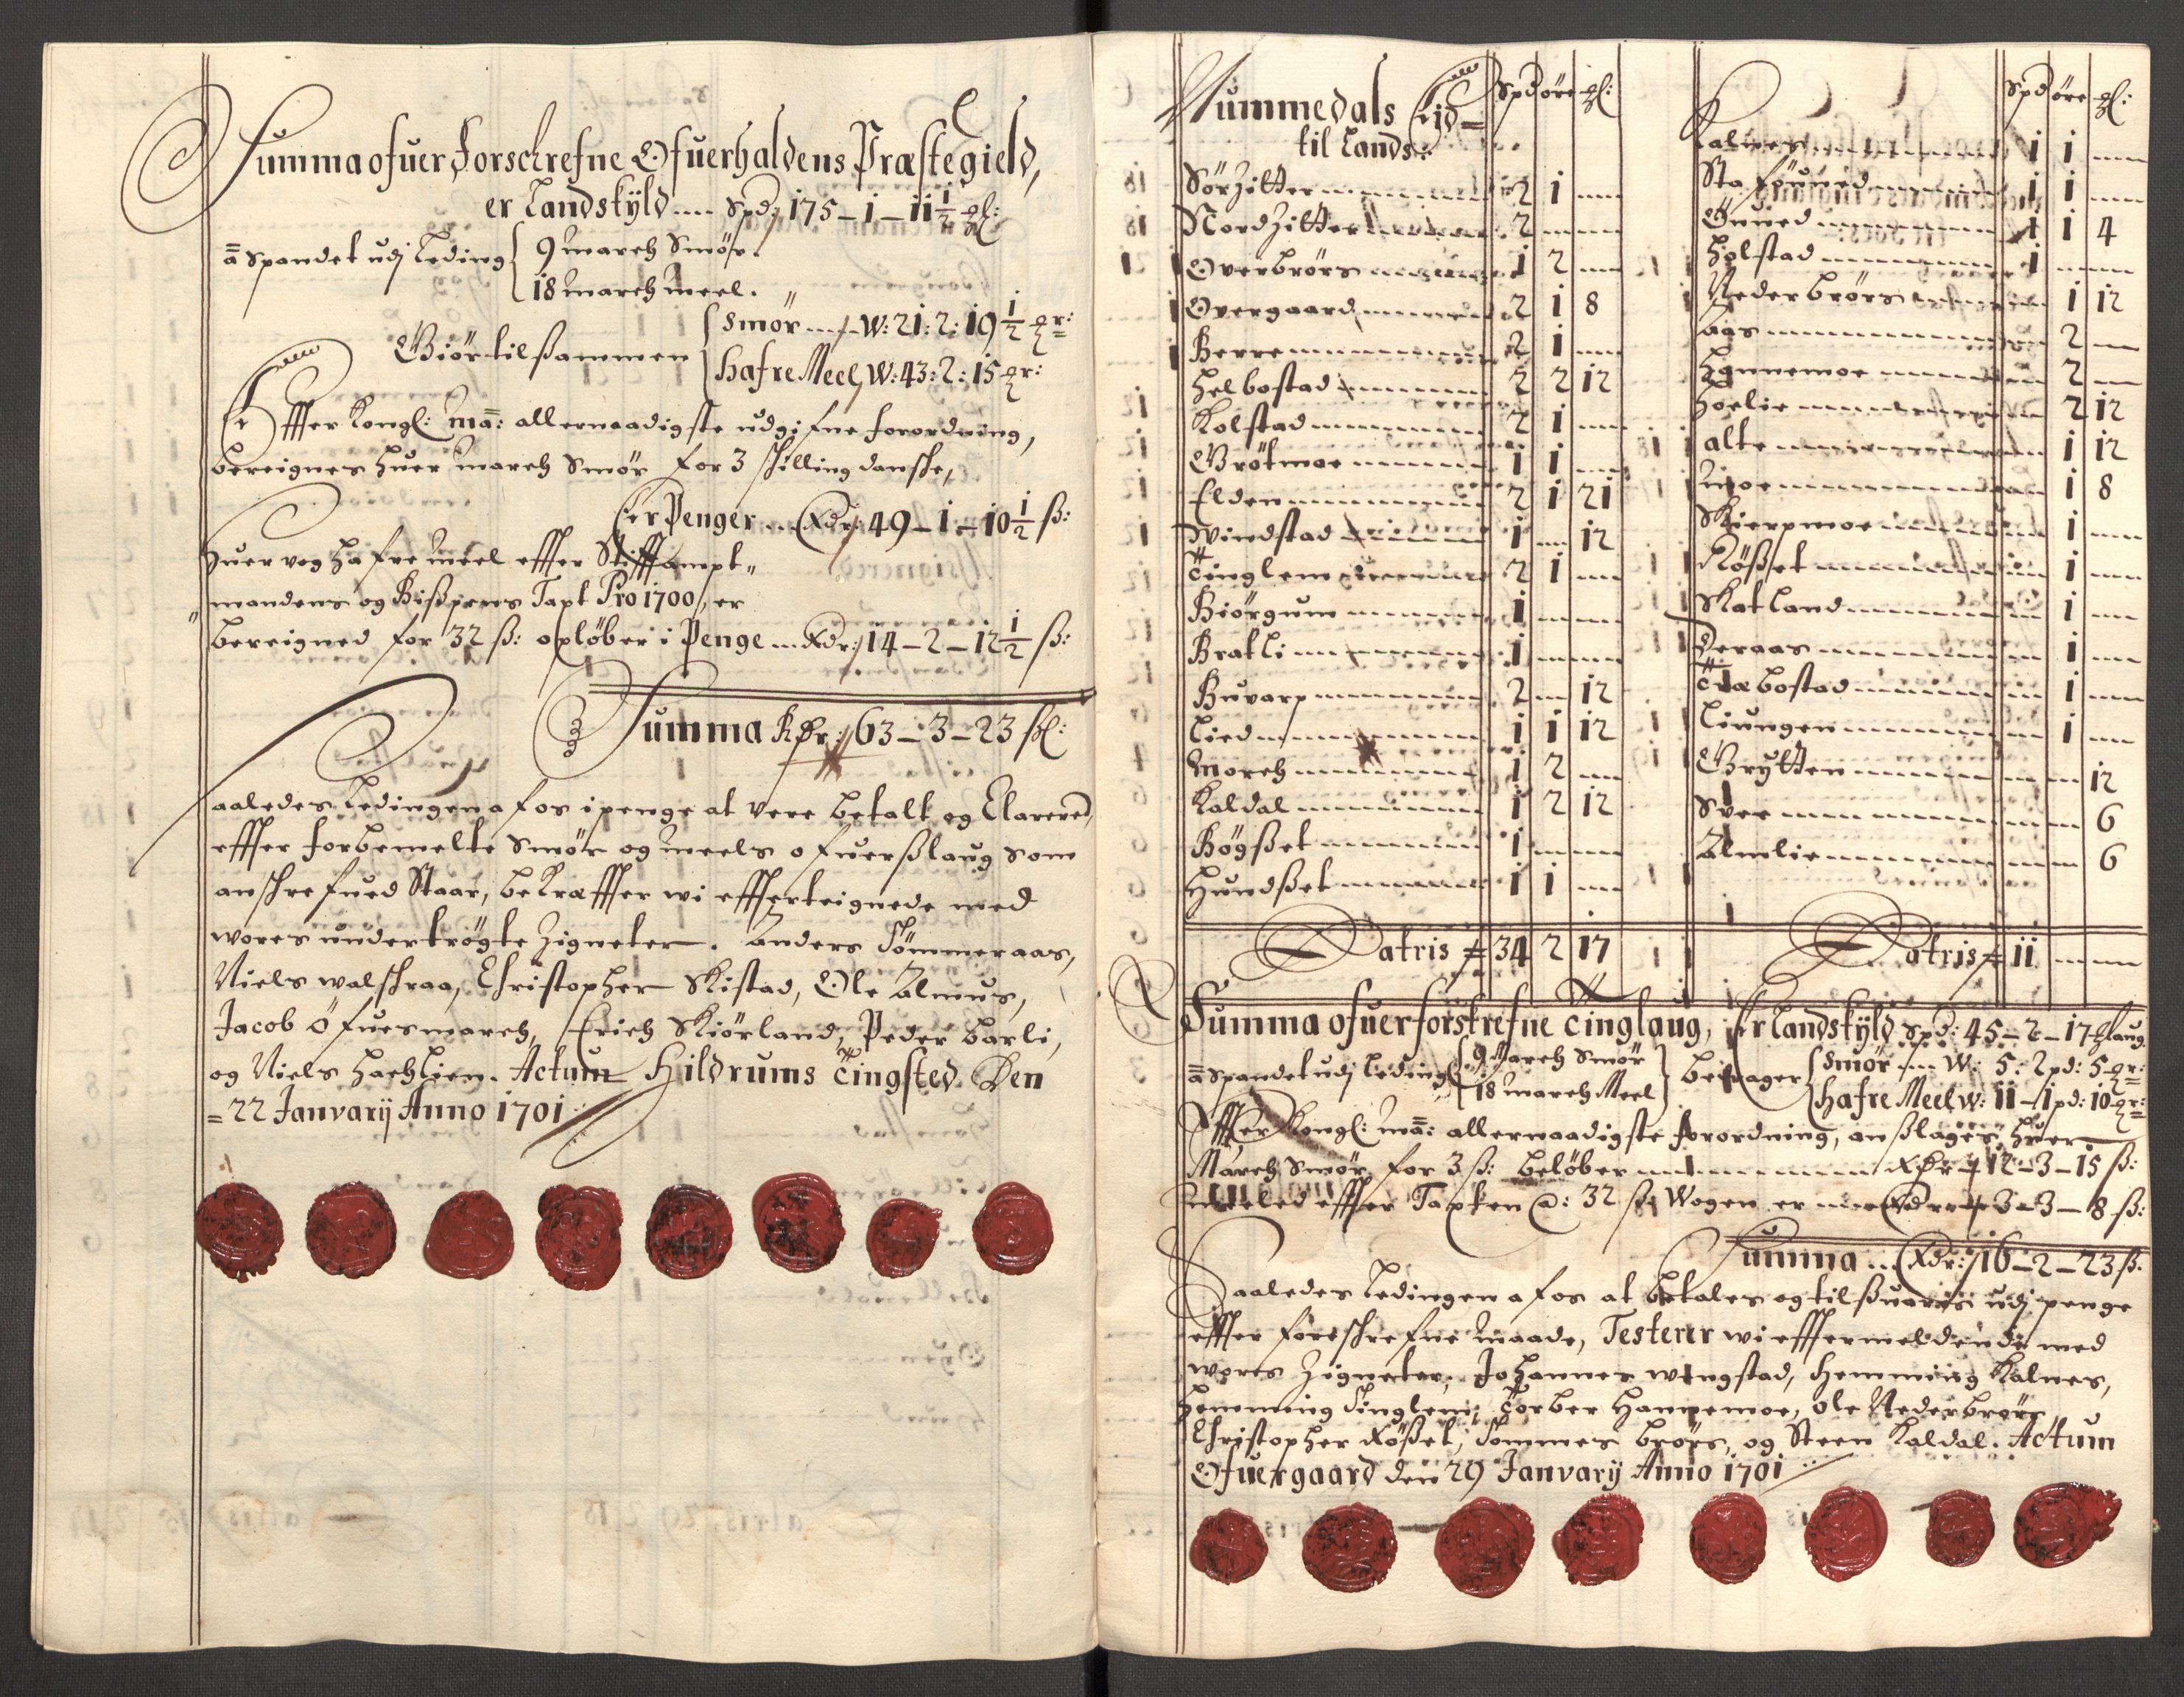 Summa ofuer forschrefne Ofuerhaldens Præstegield,
er Landskÿld .... Spd: 175 – 1 – 11 1/2 ql:
ā Spandet udj Leding { 9 march Smør.
18 march meel.
Giör tilßammen { Smör ---- W: 21: 2: 19 1/2 qr:
Hafre Meel, W: 43: 2: 15 qr:
Effter Kongl: Mā: allernaadigste udgifne forordning,
bereignes huer march Smör for 3 skilling danske,
er Penger ... Rdr: 49 – 1 – 10 1/2 ß:
huer vog hafre meel effter Stifftampt„
mandens og Bißpens Taxt Pro 1700, er
bereigned for 32 ß: opløber i Penge ... Rdr: 14 – 2 – 12 1/2 ß:
Summa Rdr: 63 – 3 – 23 sl:
Saaledes Ledingen af os i penge at vere betalt og Clarered,
effter forbemelte Smör og meels ofuerßlaug som
anschrefued Staar, bekræffter wi efftterteignede med
wores undertrögte Zigneter. Anders Sömmeraas,
Niels walskraa, Christopher Skistad, Ole Almus,
Jacob Öfuesmarch, Erich Skiörland, Peder Barli,
og Niels Hachlien. Actum Hildrums Tingsted Den
22 Janvarij Anno 1701
Nummedals Eid
til Lands:
Spd öre ql:
Sörzitter 2 1
Nordzitter 2
Overbrörs 1 2
Overgaard 2 1 8
Berre 2 1
Helbostad 2 2 12
Kolstad 2 1
Grötmoe 1 1
Elden 2 1 21
Windstad 1 – 12
Tinglem 2 1
Biörgum 1
Bratli 1
Buvarp 2 – 12
Lied 1 1 12
Morch 1 2
Kaldal 1 2 12
Bögßet 1
Hundßet 1 1
Latris 34 2 17
Spd öre ql:
Kalnes 1 1
1 1
1 1 4
Holstad 1
Nederbrörs 1 12
Aas 2
Hannemoe 2
Hoelie 2 12
Alte 1 12
Moe 1 8
Skierpmoe 1
Rößset 1
Skatland 1
Deraas 1
Træbostad 1
Liungen 1
Grytten 12
Svee 6
Almlie 6
Latris 11
Summa ofuer forskrefne Tinglaug, Er Landskÿld Spd: 45 – 2 – 17 Laug
ā Spandet udj Leding { 9 March Smör
18 march Meel } bedrager { Smör --- W: 5: 2 pd: 5 qr:
Hafre Meel W: 11 – 1 pd: 10 qr:
Effter Kongl: mā: allernaadigste forordning, anßlages huer
March Smör for 3 ß: belöber Rdr 12 – 3 – 15 ß:
Meeled effter Taxten a: 32 ß: Wogen er Rdr 3 – 3 – 8 ß:
Summa ... Rdr: 16 – 2 – 23 ß:
Saaledes Ledingen af os at betales og tilßvaris udj penge
effter foreschrefne maade, Testerer wi efftermeldende med
wores Zigneter, Johannes wingstad, Hemming Kalnes,
Hemming Tinglem, Torber Hannemoe, Ole Nederbrörs,
Christopher Rößet, Tommes brörs, og Steen Kaldal. Actum
Ofuergaard den 29 Janvarij Anno 1701